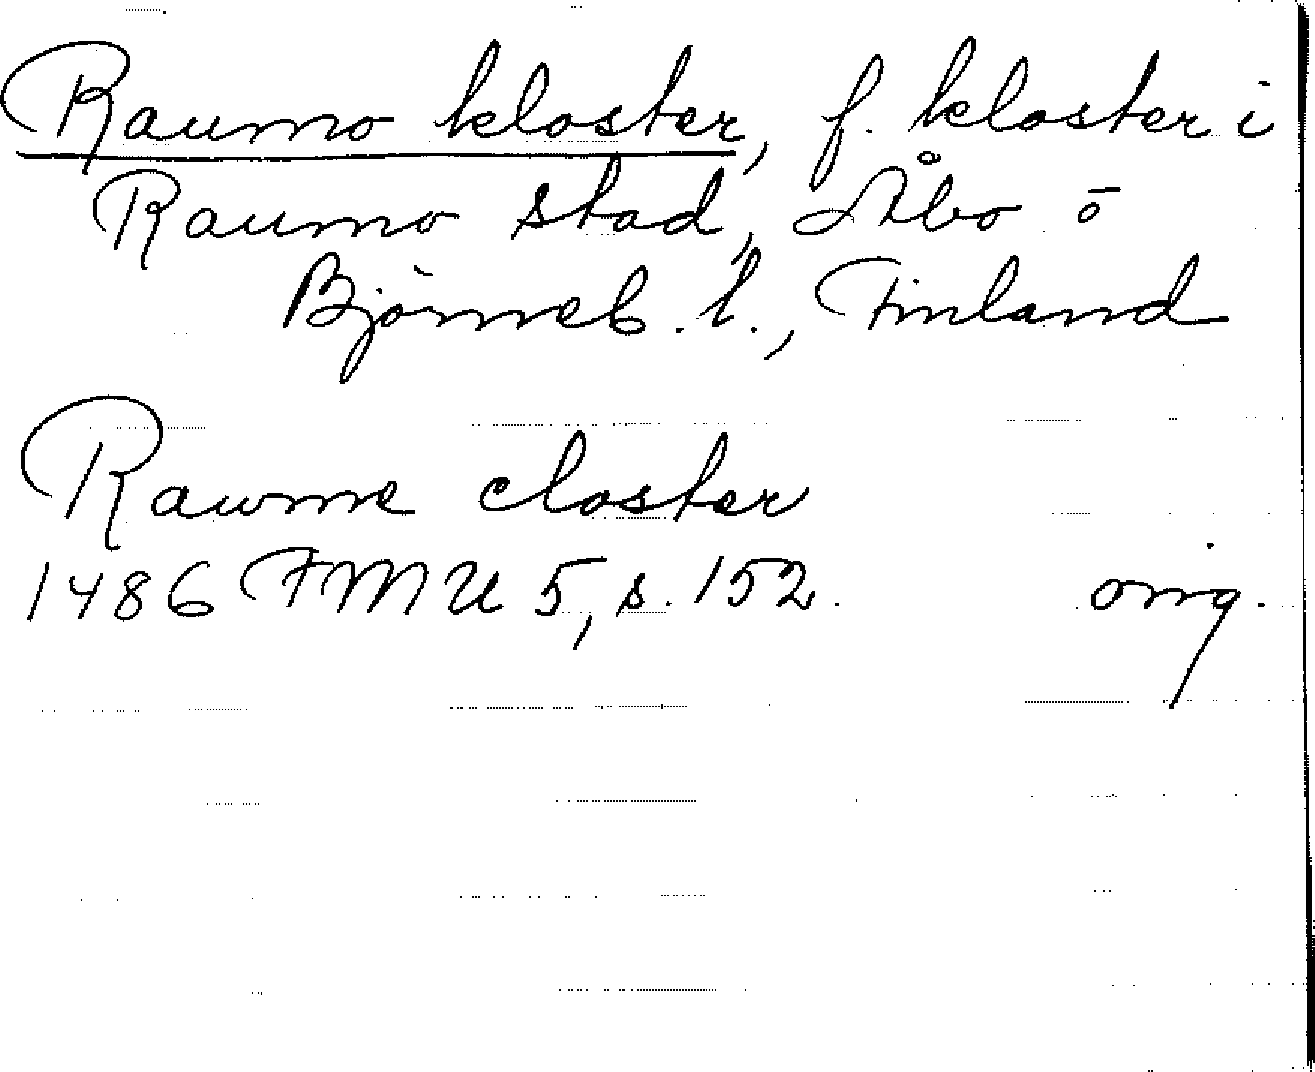 Raumo kloster, f. kloster i
Raumo stad, Åbo o
Björneb. l., Finland
Rawme closter
1486 FMU 5, s. 152. orig.